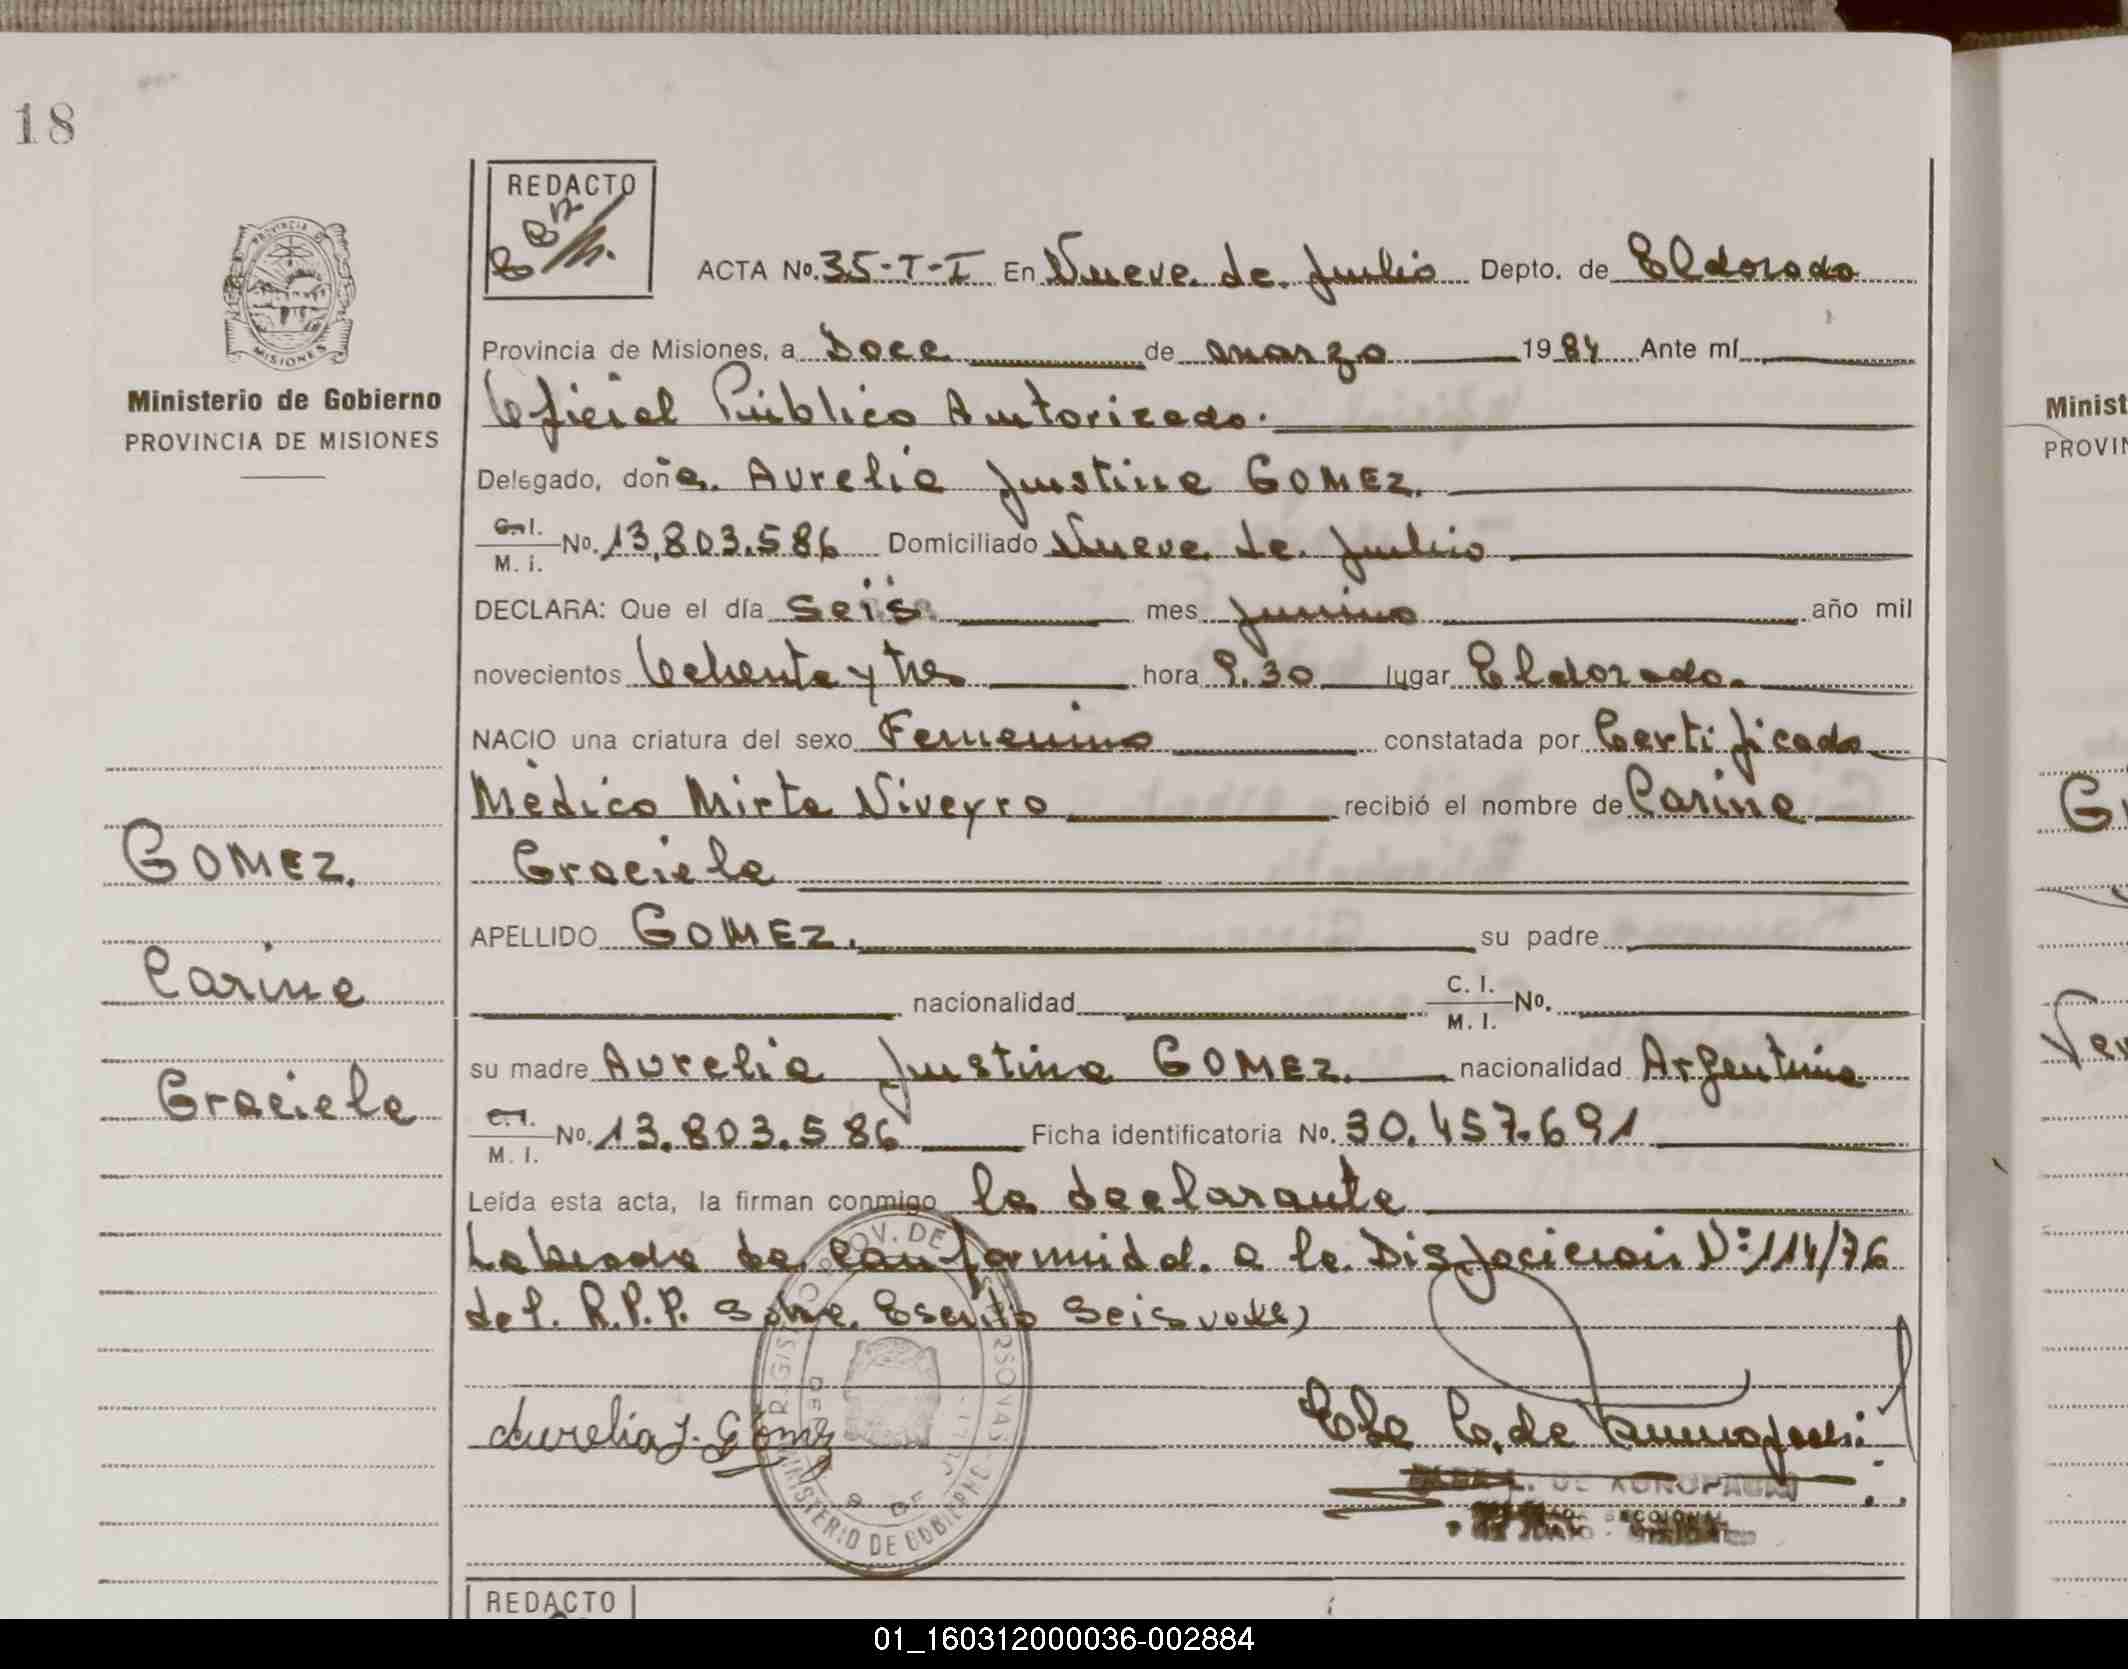 18
REDACTO
PROVINCIA DE
MISIONES
Ministerio de Gobierno
PROVINCIA DE MISIONES
ACTA No. 35-T-I En Nueve de Julio Depto. de Eldorado
Provincia de Misiones, a Doce de marzo 1984 Ante mí
Oficial Público Autorizado.
Delegado, doña. Aurelia Justina GOMEZ.
C. I. / M. i. No. 13.803.586 Domiciliado Nueve de Julio
DECLARA: Que el día seis mes junio año mil
novecientos Ochenta y tres hora 9.30 lugar Eldorado.
NACIO una criatura del sexo Femenino constatada por Certificado
Médico Mirta Niveyro recibió el nombre de Carina
Graciela
APELLIDO GOMEZ. su padre
nacionalidad C. I. / M. I. No.
su madre Aurelia Justina GOMEZ. nacionalidad Argentina
C. I. / M. I. No. 13.803.586 Ficha identificatoria No. 30.457.691
Leída esta acta, la firman conmigo la declarante
Labrada de Conformidd. a la Disposicion Nº: 114/76
del. R.P.P. Sobre Escrito Seis vale)
Aurelia J. Gómez
GOMEZ.
Carina
Graciela
PROV. DE
MINISTERIO DE GOBIERNO
REDACTO
Minist
PROVIN
01_160312000036-002884